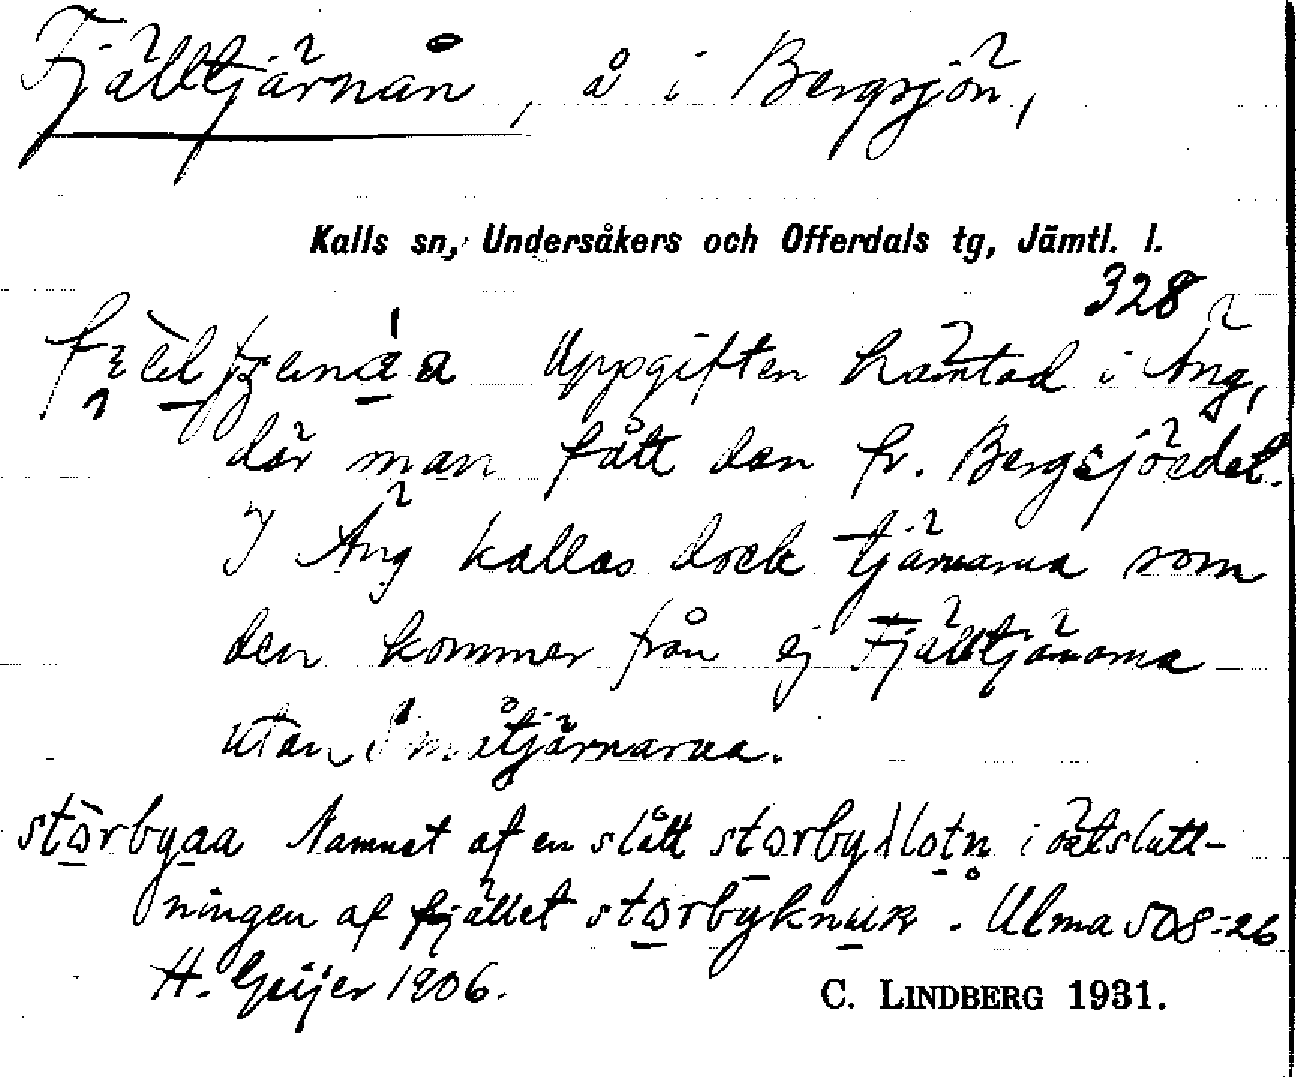 Fjälltjärnån, å i Bergsjön,
Kalls sn, Undersåkers och Offerdals tg, Jämtl. l.
328
Uppgiften hämtad i Äng,
där man fått den fr. Bergsjöådal.
I Äng kallas dock tjärnarna som
den kommer från ej Fjälltjärnarna
utan Småtjärnarna.
Namnet af en slått i östslutt-
ningen af fjället . Ulma 508:26
H. Geijer 1906.
C. LINDBERG 1931.